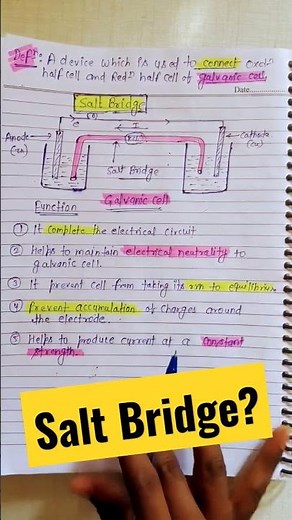 Defn: A device which is used to connect Oxdn
half cell and Redn half cell of galvanic cell.
Date
Salt Bridge
e
I
Anode
Cathode
(cu)
Salt Bridge
Galvanic Cell
Function
① It complete the electrical circuit
② Helps to maintain electrical neutrality to
galvanic cell.
③ It prevent cell from taking its rxn to equilibrium
④ Prevent accumulation of charges around
the electrode.
⑤ Helps to produce current at a constant
strength.
Salt Bridge?